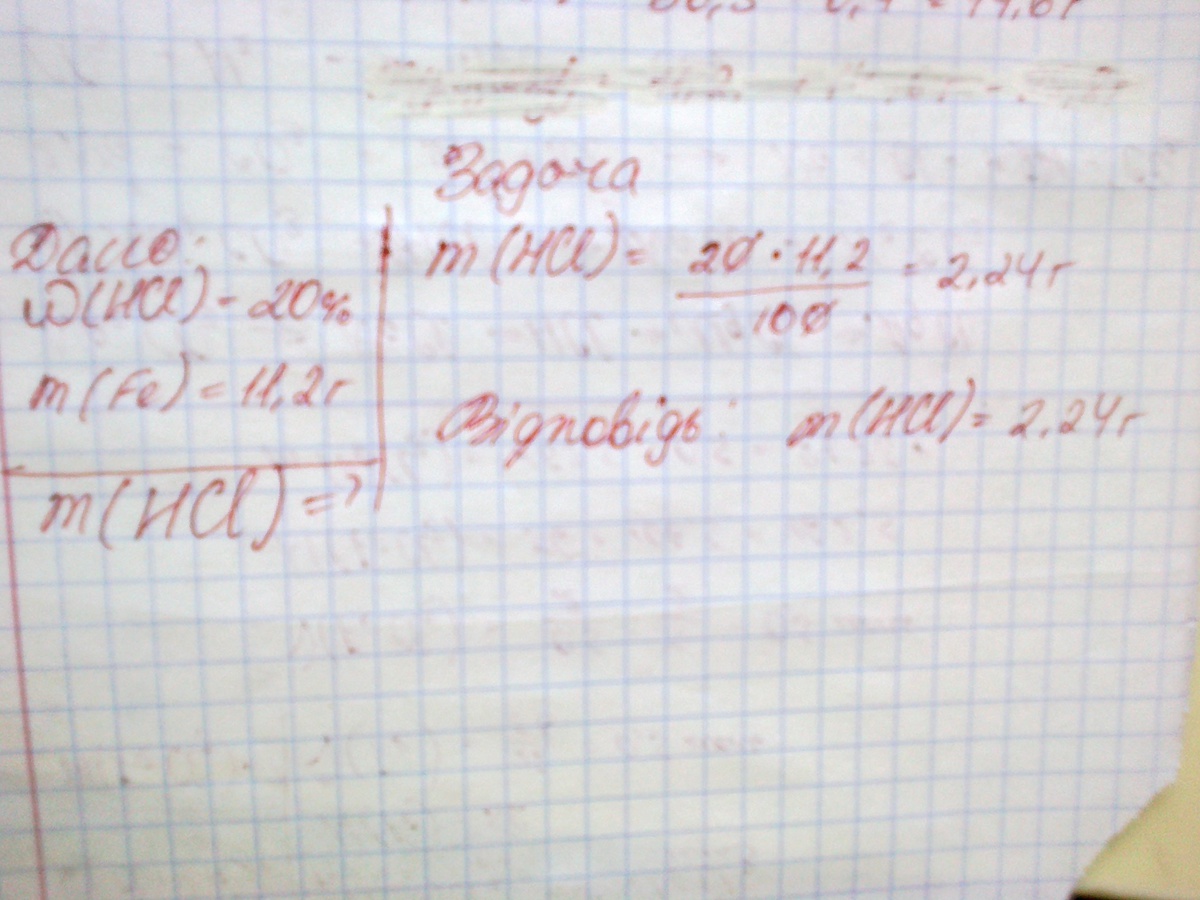 Задача
Дано:
W(HCl) - 20%
m(Fe) = 11,2г
m(HCl) = ?
m(HCl) = 20 · 11,2 / 100 = 2,24г
Відповідь: m(HCl) = 2,24г